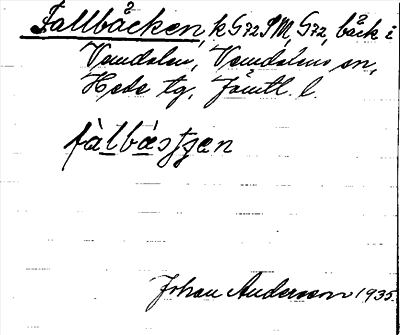 Fallbäcken, k G72 SM, G72, bäck i
Vemdalen, Vemdalens sn,
Hede tg, Jämtl. l.
fàlbæ̀ʃʃen
Johan Anderson 1935.